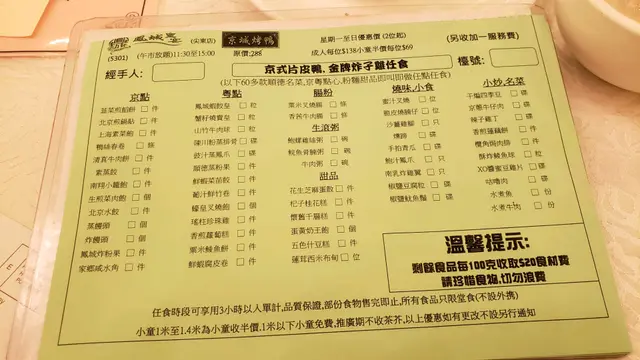 鳳城宴 (尖東店) 京城烤鴨 星期一至日優惠價 (2位起) (另收加一服務費)
(5301) (午市放題)11:30至15:00 原價:286 成人每位$138小童半價每位$69
經手人: 京式片皮鴨, 金牌炸子雞任食 檯號:
(以下60多款順德名菜,京粵點心,粉麵甜品即叫即做任點任食)
京點
韮菜煎餡餅 件
北京煎鍋貼 件
上海素菜飽 個
鴨絲春卷 條
清真牛肉餅 件
素蒸餃 件
南翔小籠飽 個
生煎菜肉飽 個
北京水餃 件
蒸饅頭 個
炸饅頭 個
鳳城炸粉果 件
家鄉咸水角 件
粵點
鳳城蝦餃皇 粒
蟹籽燒賣皇 粒
山竹牛肉球 粒
陳川粉蒸排骨 碟
豉汁蒸鳳爪 碟
順德蒸粉果 件
鮮蝦菜苗餃 件
葡汁鮮竹卷 件
蠔皇叉燒飽 個
瑤柱珍珠雞 個
香煎蘿蔔糕 件
粟米鯪魚餅 件
鮮蝦腐皮卷 件
腸粉
粟米叉燒腸 條
香茜牛肉腸 條
生滾粥
鮑螺雞絲粥 碗
鯪魚骨腩粥 碗
牛肉粥 碗
甜品
花生芝麻蛋散 件
杞子桂花糕 件
懷舊千層糕 件
蛋黃奶王飽 個
五色什豆糕 件
蓮茸西米布甸 位
燒味,小食
蜜汁叉燒 位
脆皮燒腩仔 位
沙薑雞腳 隻
燻蹄 碟
手拍青瓜 碟
鮑汁鳳爪 只
南乳炸雞翼 只
椒鹽豆腐粒 碟
椒鹽魷魚鬚 碟
小炒,名菜
干煸四季豆 碟
京葱牛仔肉 碟
辣子雞丁 碟
香煎蓮藕餅 件
欖角焗肉腩 件
酥炸鯪魚球 粒
XO醬蜜豆雞片 碟
咕嚕肉 碟
水煮魚 份
水煮牛肉 份
溫馨提示:
剩餘食品每100克收取$20食材費
請珍惜食物,切勿浪費
任食時段可享用3小時以人單計,品質保證,部份食物售完即止,所有食品只限堂食(不設外携)
小童1米至1.4米為小童收半價,1米以下小童免費,推廣期不收茶芥,以上優惠如有更改不設另行通知